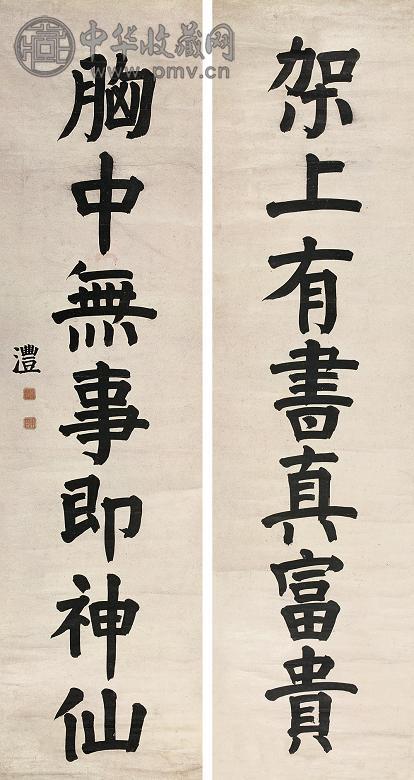 中华收藏网
www.pmv.cn
架上有書真富貴
胸中無事即神仙
灃